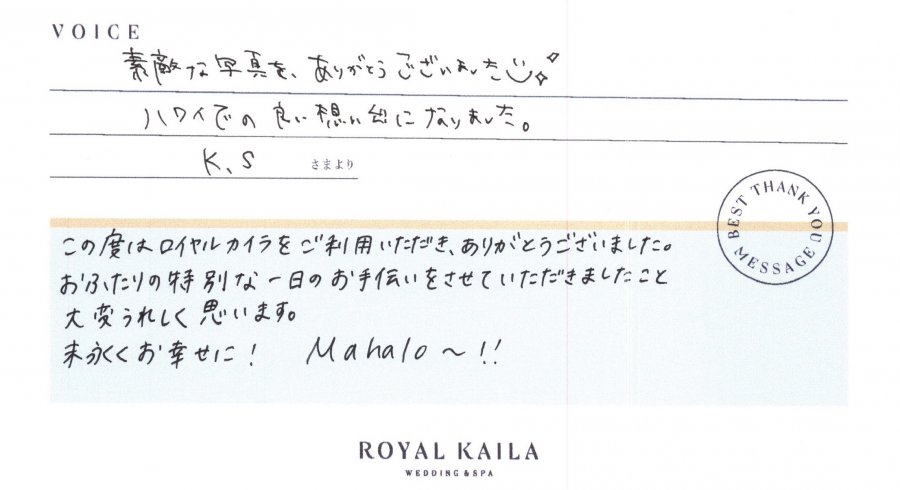 VOICE
素敵な写真を、ありがとうございました
ハワイでの良い想い出になりました。
K、S さまより
BEST THANK YOU MESSAGE
この度はロイヤルカイラをご利用いただき、ありがとうございました。
おふたりの特別な一日のお手伝いをさせていただきましたこと
大変うれしく思います。
末永くお幸せに! Mahalo〜!!
ROYAL KAILA
WEDDING & SPA